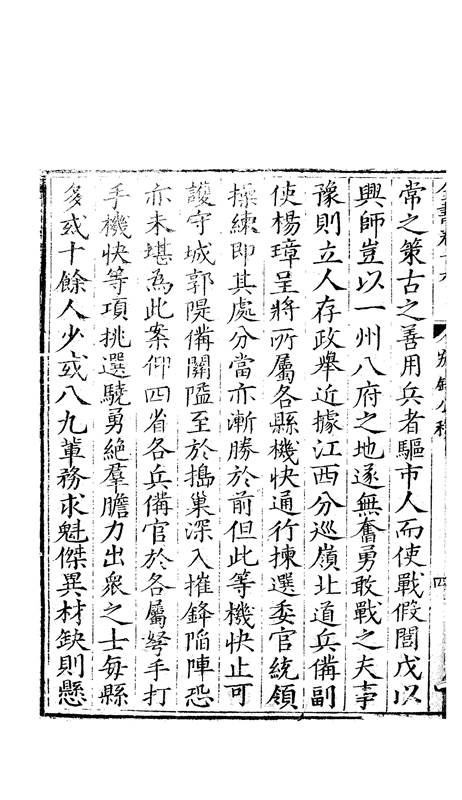 常之策古之善用兵者驅市人而使戰假閭戍以
興師豈以一州八府之地遂無奮勇敢戰之夫事
豫則立人存政舉近據江西分巡嶺北道兵備副
使楊璋呈將所屬各縣機快通行揀選委官統領
操練即其處分當亦漸勝於前但此等機快止可
護守城郭隄備關隘至於搗巢深入摧鋒陷陣恐
亦未堪為此案仰四省各兵備官於各屬弩手打
手機快等項挑選驍勇絕羣膽力出衆之士每縣
多或十餘人少或八九軰務求魁傑異材缺則懸